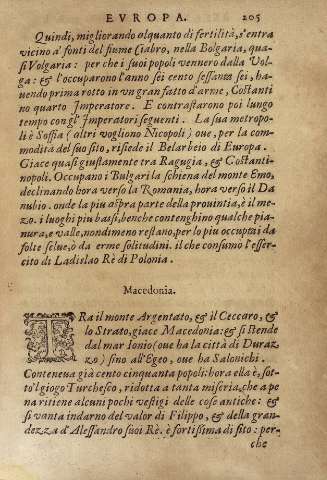 EVROPA. 205
Quindi, migliorando alquanto di fertilità, s'entra
vicino a' fonti del fiume Ciabro, nella Bolgaria, qua-
si Volgaria: per che i suoi popoli vennero dalla Vol-
ga: & l'occuparono l'anno sei cento sessanta sei, ha-
uendo prima rotto in un gran fatto d'arme, Costãti
no quarto Imperatore. E contrastarono poi lungo
tempo con gl'Imperatori seguenti. La sua metropo-
li è Soffia (oltri vogliono Nicopoli) oue, per la com-
modità del suo sito, risiede il Belarbeio di Europa.
Giace quasi giustamente tra Ragugia, & Costãti-
nopoli. Occupano i Bulgari la schiena del monte Emo,
declinando hora verso la Romania, hora verso il Da
nubio. onde la piu aspra parte della prouintia, è il me-
zo. i luoghi piu bassi, benche contenghino qualche pia-
nura, e valle, nondimeno restano, per lo piu occupati da
folte selue, ò da erme solitudini. il che consumò l'esser-
cito di Ladislao Rè di Polonia.
Macedonia.
TRa il monte Argentato, & il Ceccaro, &
lo Strato, giace Macedonia: & si stende
dal mar Ionio (oue ha la città di Duraz-
zo) sino all'Egeo, oue ha Salonichi.
Conteneua già cento cinquanta popoli: hora ella è, sot-
to'l giogo Turchesco, ridotta a tanta miseria, che a pe
na ritiene alcuni pochi vestigi delle cose antiche: &
si vanta indarno del valor di Filippo, & della gran-
dezza d'Alessandro suoi Rè. è fortissima di sito: per-
che